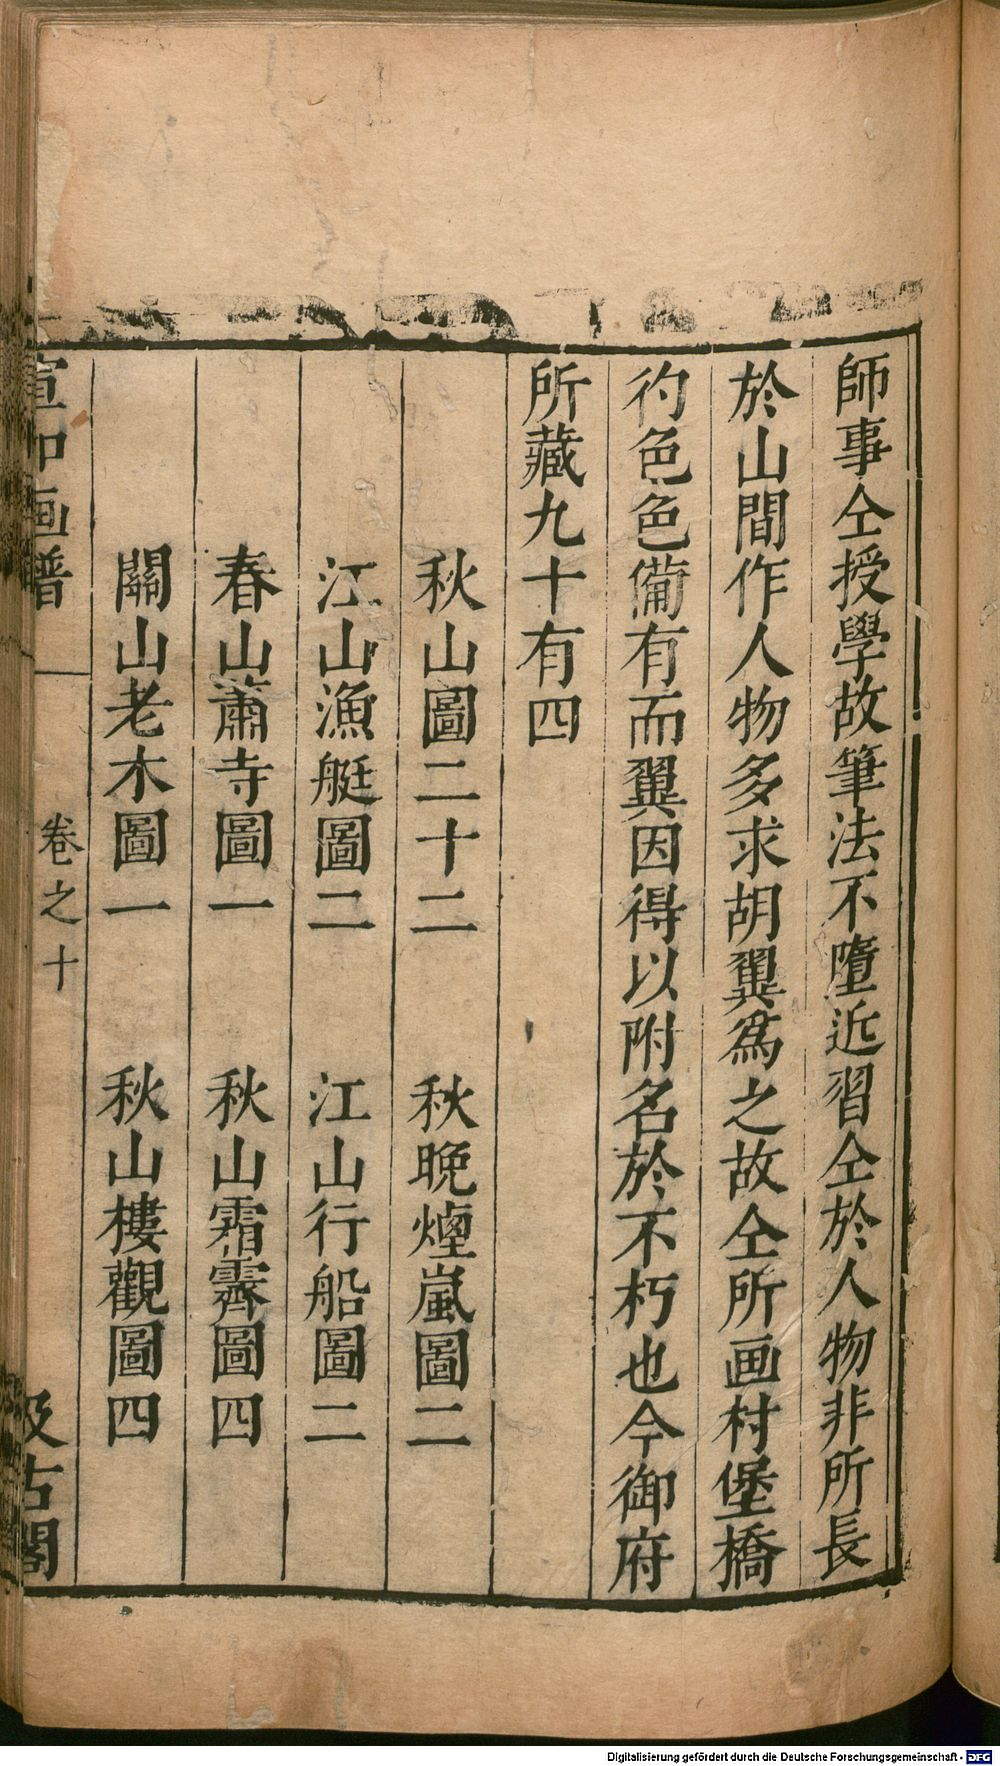 師事仝授學故筆法不墮近習仝於人物非所長
於山間作人物多求胡翼爲之故仝所画村堡橋
彴色色備有而翼因得以附名於不朽也今御府
所藏九十有四
秋山圖二十二 秋晚煙嵐圖二
江山漁艇圖二 江山行船圖二
春山蕭寺圖一 秋山霜霽圖四
關山老木圖一 秋山樓觀圖四
宣和画譜 卷之十 汲古閣
Digitalisierung gefördert durch die Deutsche Forschungsgemeinschaft - DFG